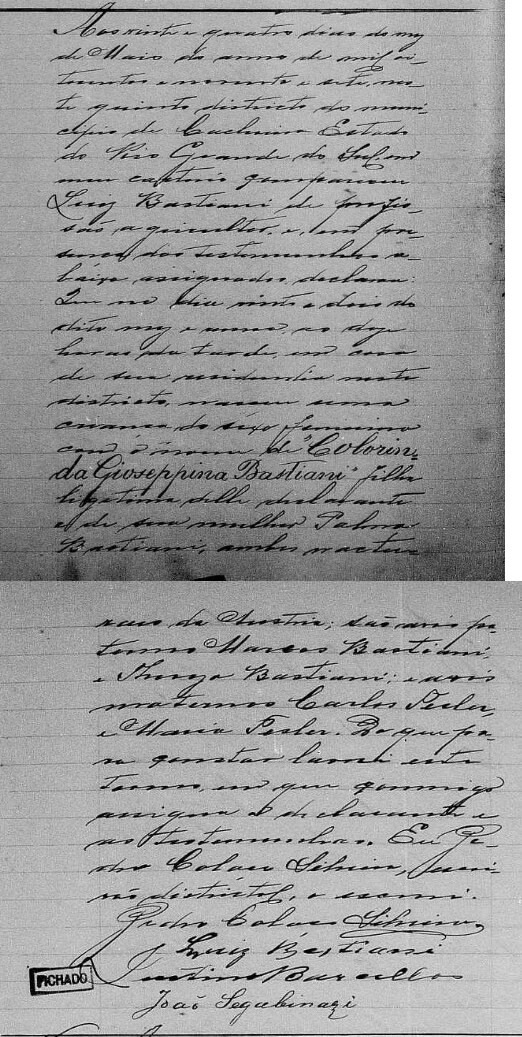 Aos vinte e quatro dias do mez
de Maio do anno de mil oi-
tocentos e noventa e sete, nes-
te quinto districto do muni-
cipio de Cachoeira Estado
do Rio Grande do Sul, em
meu cartorio compareceu
Luiz Bastiani, de profis-
são agricultor, e, em pre-
sença das testemunhas a-
baixo assignadas, declarou:
Que no dia vinte e dois do
dito mez e anno, as doze
horas da tarde, em casa
de sua residencia neste
districto, nasceu uma
criança do sexo feminino
com o nome de "Colorin-
da Gioseppina Bastiani" filha
legitima delle declarante
e de sua mulher Palma
Bastiani, ambos natu-
raes da Austria; são avós pa-
ternos Marcos Bastiani,
e Thereza Bastiani; e avós
maternos Carlos Pesler,
e Maria Pesler. Do que pa-
ra constar lavrei este
termo, em que commigo
assigna o declarante e
as testemunhas. Eu Pe-
dro Colaço Silveira, escri-
vão districtal, o escrevi.
Pedro Colaço Silveira
Luiz Bastiani
Justino Barcellos
FICHADO
João Segabinazi